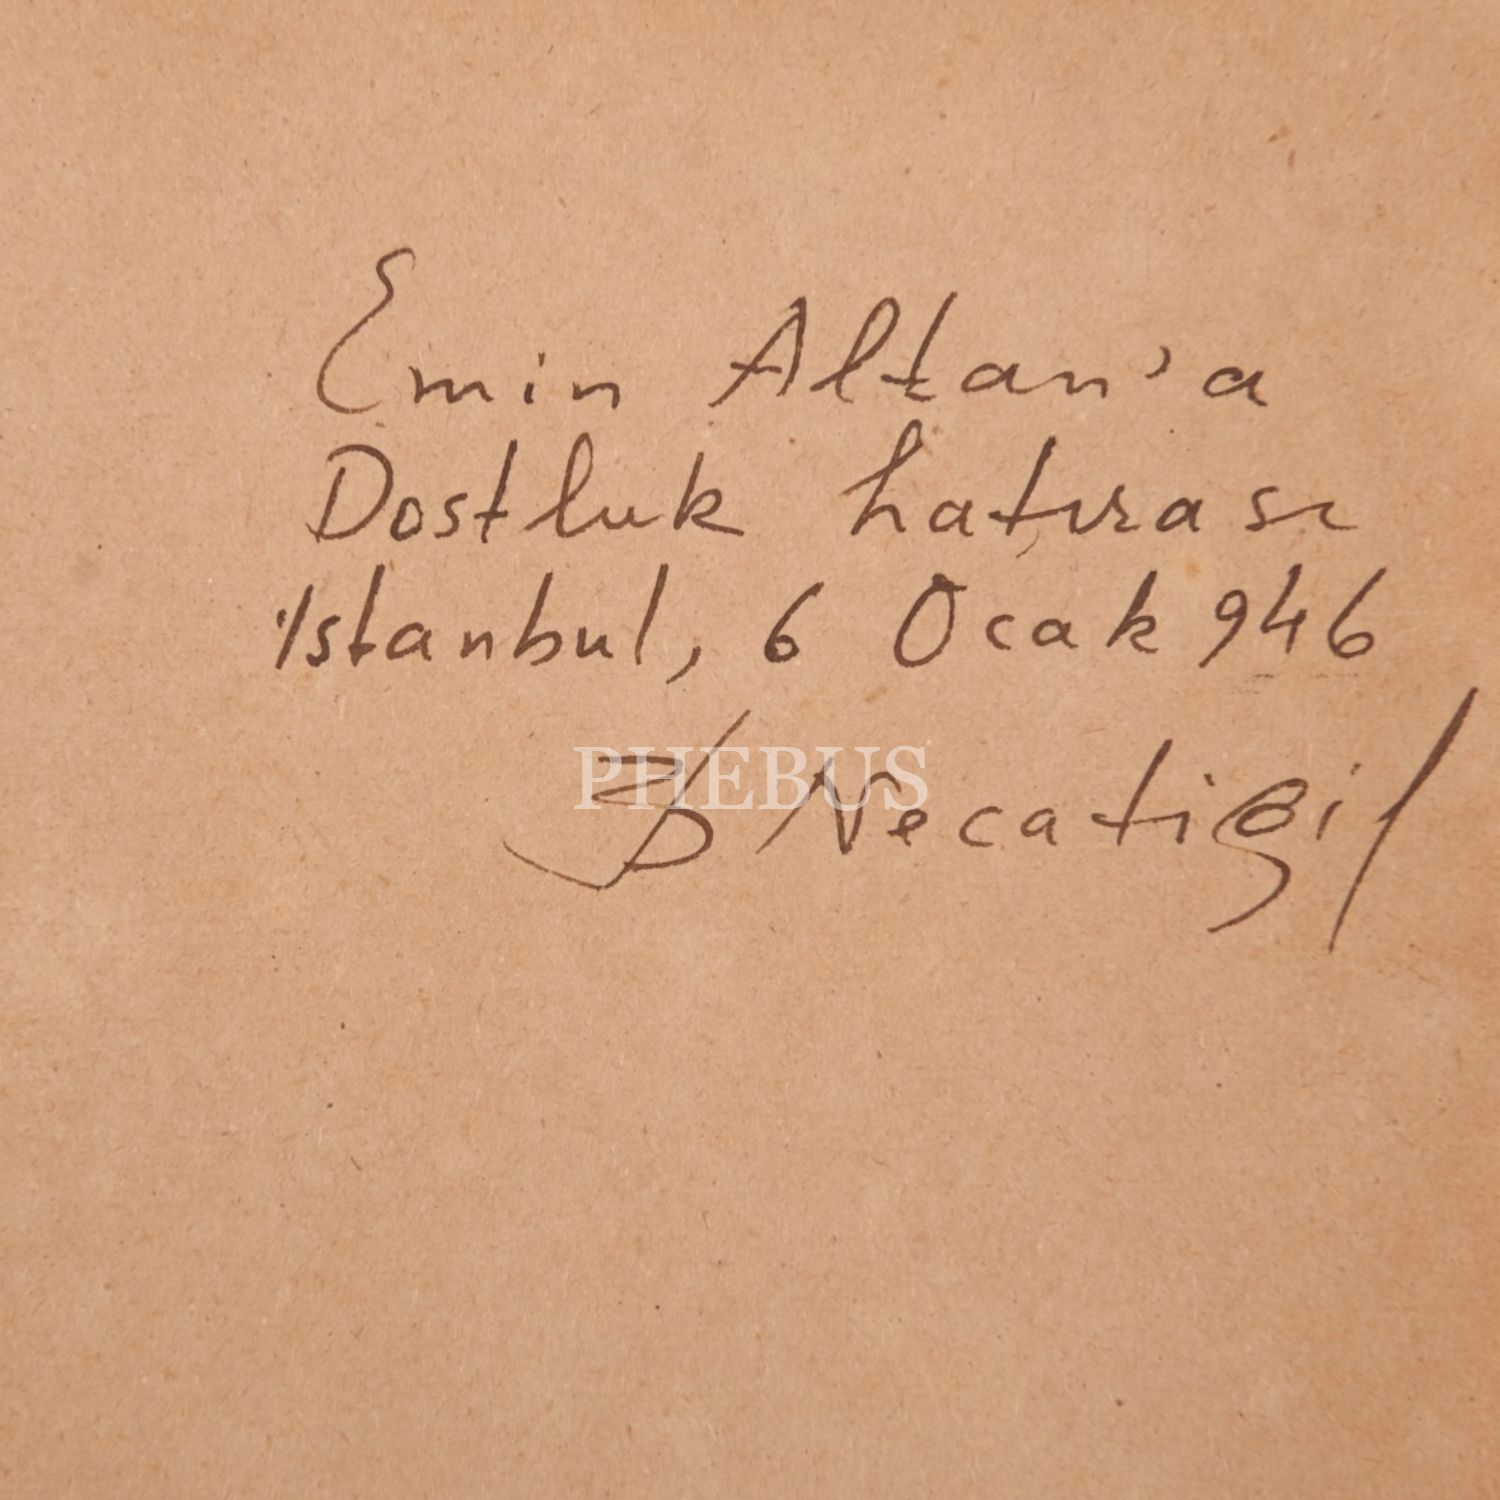 Emin Altan'a
Dostluk hatırası
İstanbul, 6 Ocak 946
PHEBUS
B Necatigil